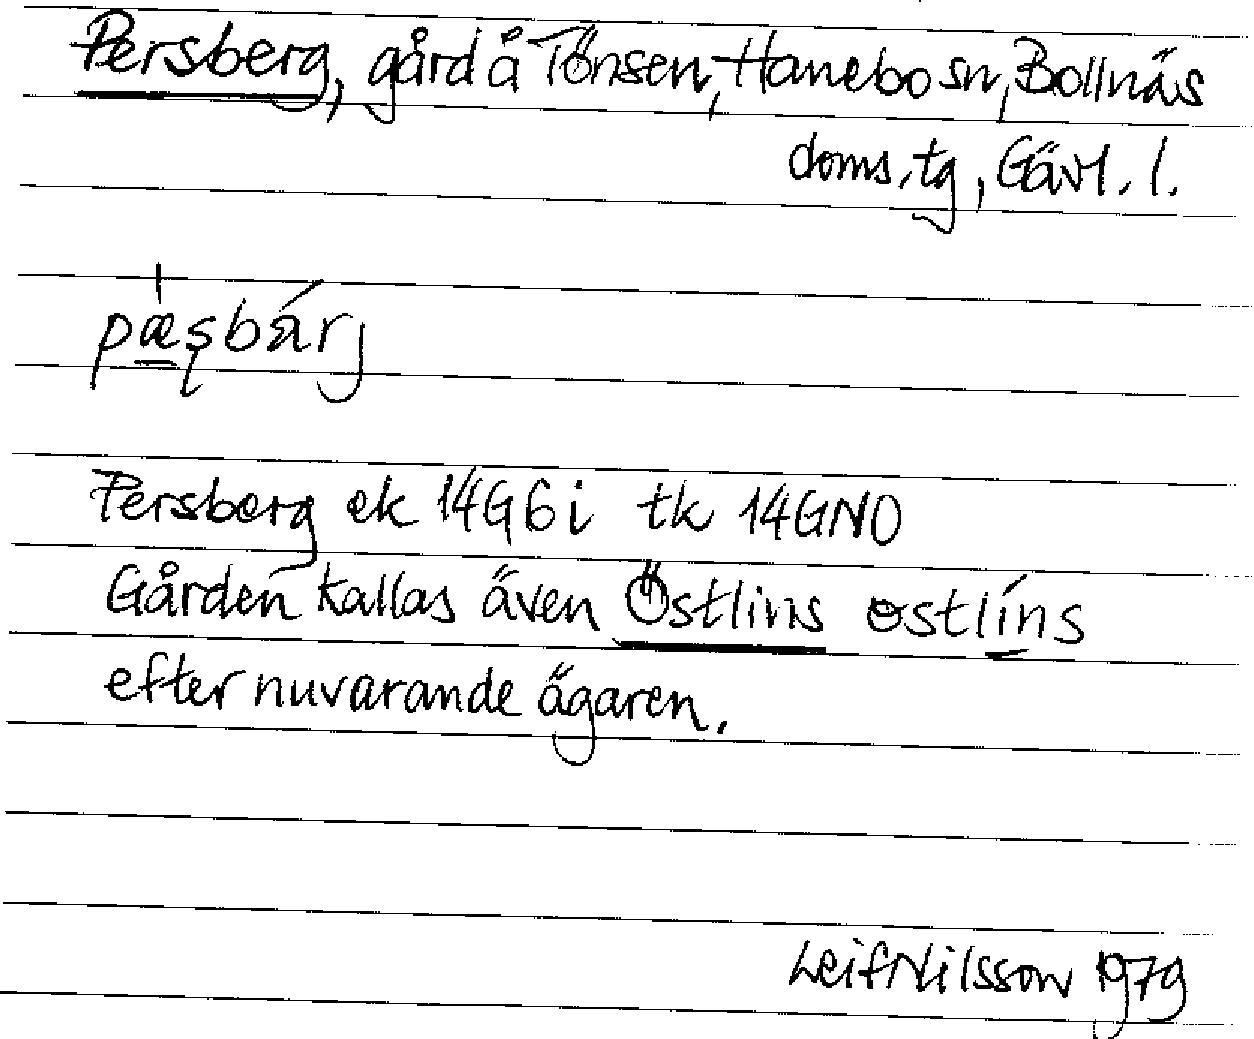 Persberg, gård å Tönsen, Hanebo sn, Bollnäs
doms. tg, Gävl. l.
pæ̲ʂbárj
Persberg ek 14G6i tk 14GNO
Gården kallas även Östlins ɵstlí̲ns
efter nuvarande ägaren.
Leif Nilsson 1979